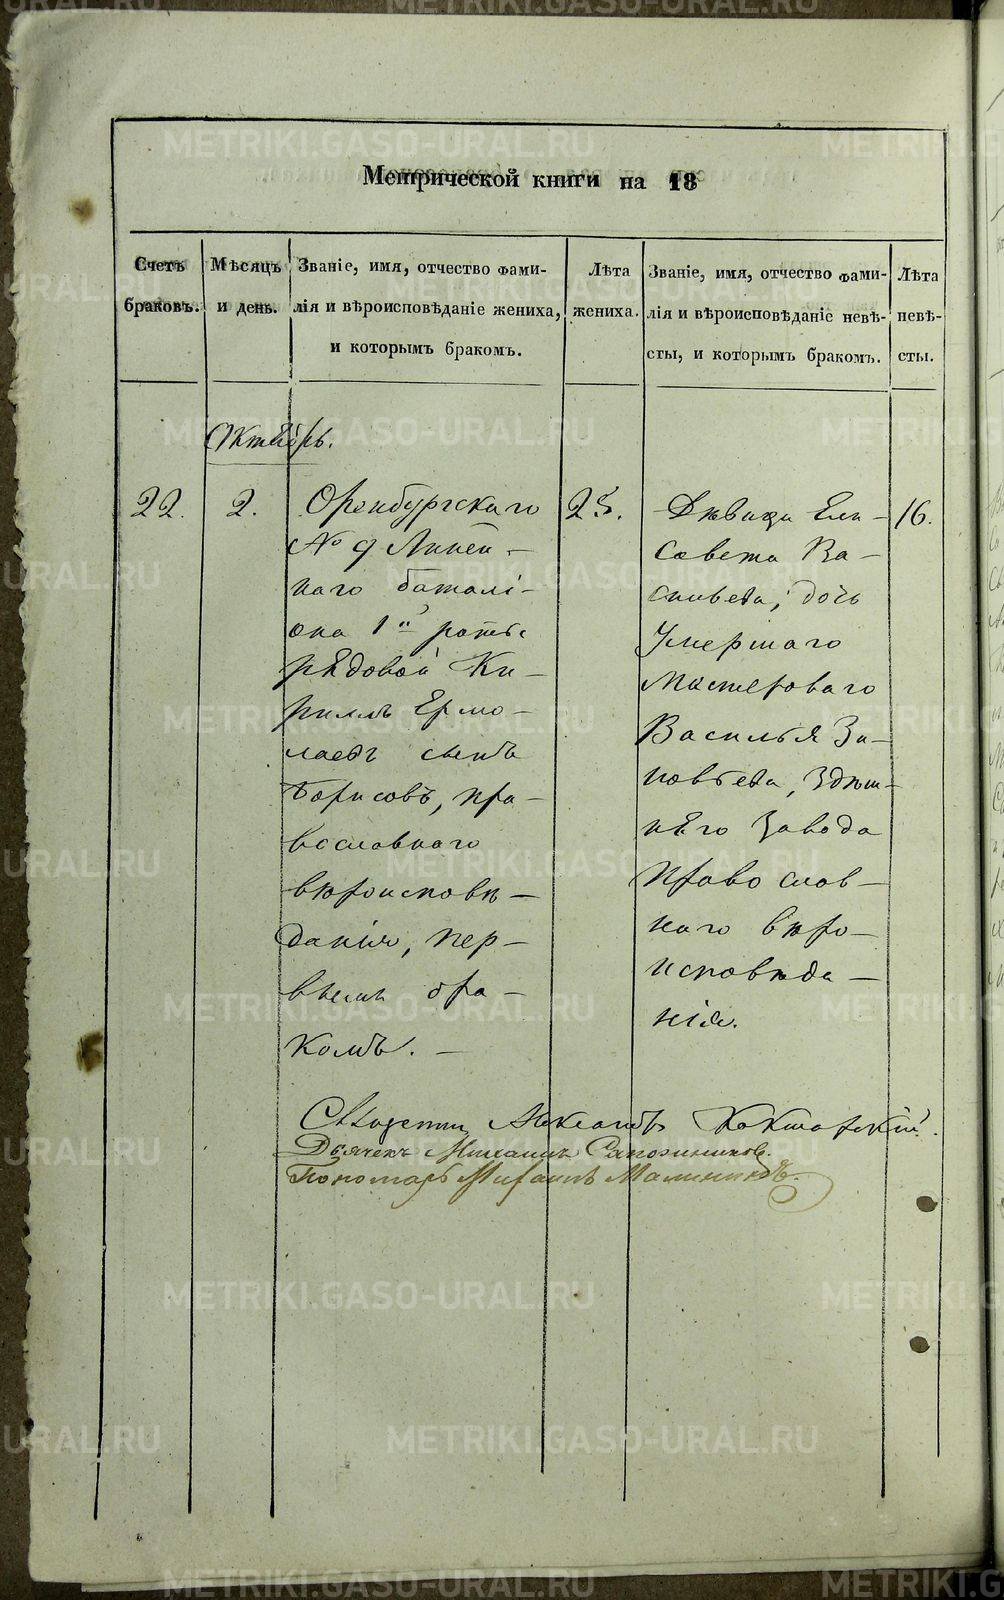 Метрической книги на 18
Счетъ браковъ.
Мѣсяцъ и день.
Званіе, имя, отчество фами-
лія и вѣроисповѣданіе жениха,
и которымъ бракомъ.
Лѣта
жениха.
Званіе, имя, отчество фами-
лія и вѣроисповѣданіе невѣ-
сты, и которымъ бракомъ.
Лѣта
невѣ-
сты.
Октябрь.
22.
2.
Оренбургскаго
№ 9 Линей-
наго баталі-
она 1й роты
рядовой Ки-
риллъ Ермо-
лаевъ сынъ
Борисовъ, пра-
вославнаго
вѣроисповѣ-
данія, пер-
вымъ бра-
комъ. —
25.
Дѣвица Ели-
савета Ва-
сильева, дочь
Умершаго
Мастероваго
Василья За-
Здѣш-
няго Завода
Православ-
наго вѣро-
исповѣда-
нія.
16.
Дьячекъ Михаилъ Сапожниковъ.
Пономарь Михаилъ
METRIKI.GASO-URAL.RU